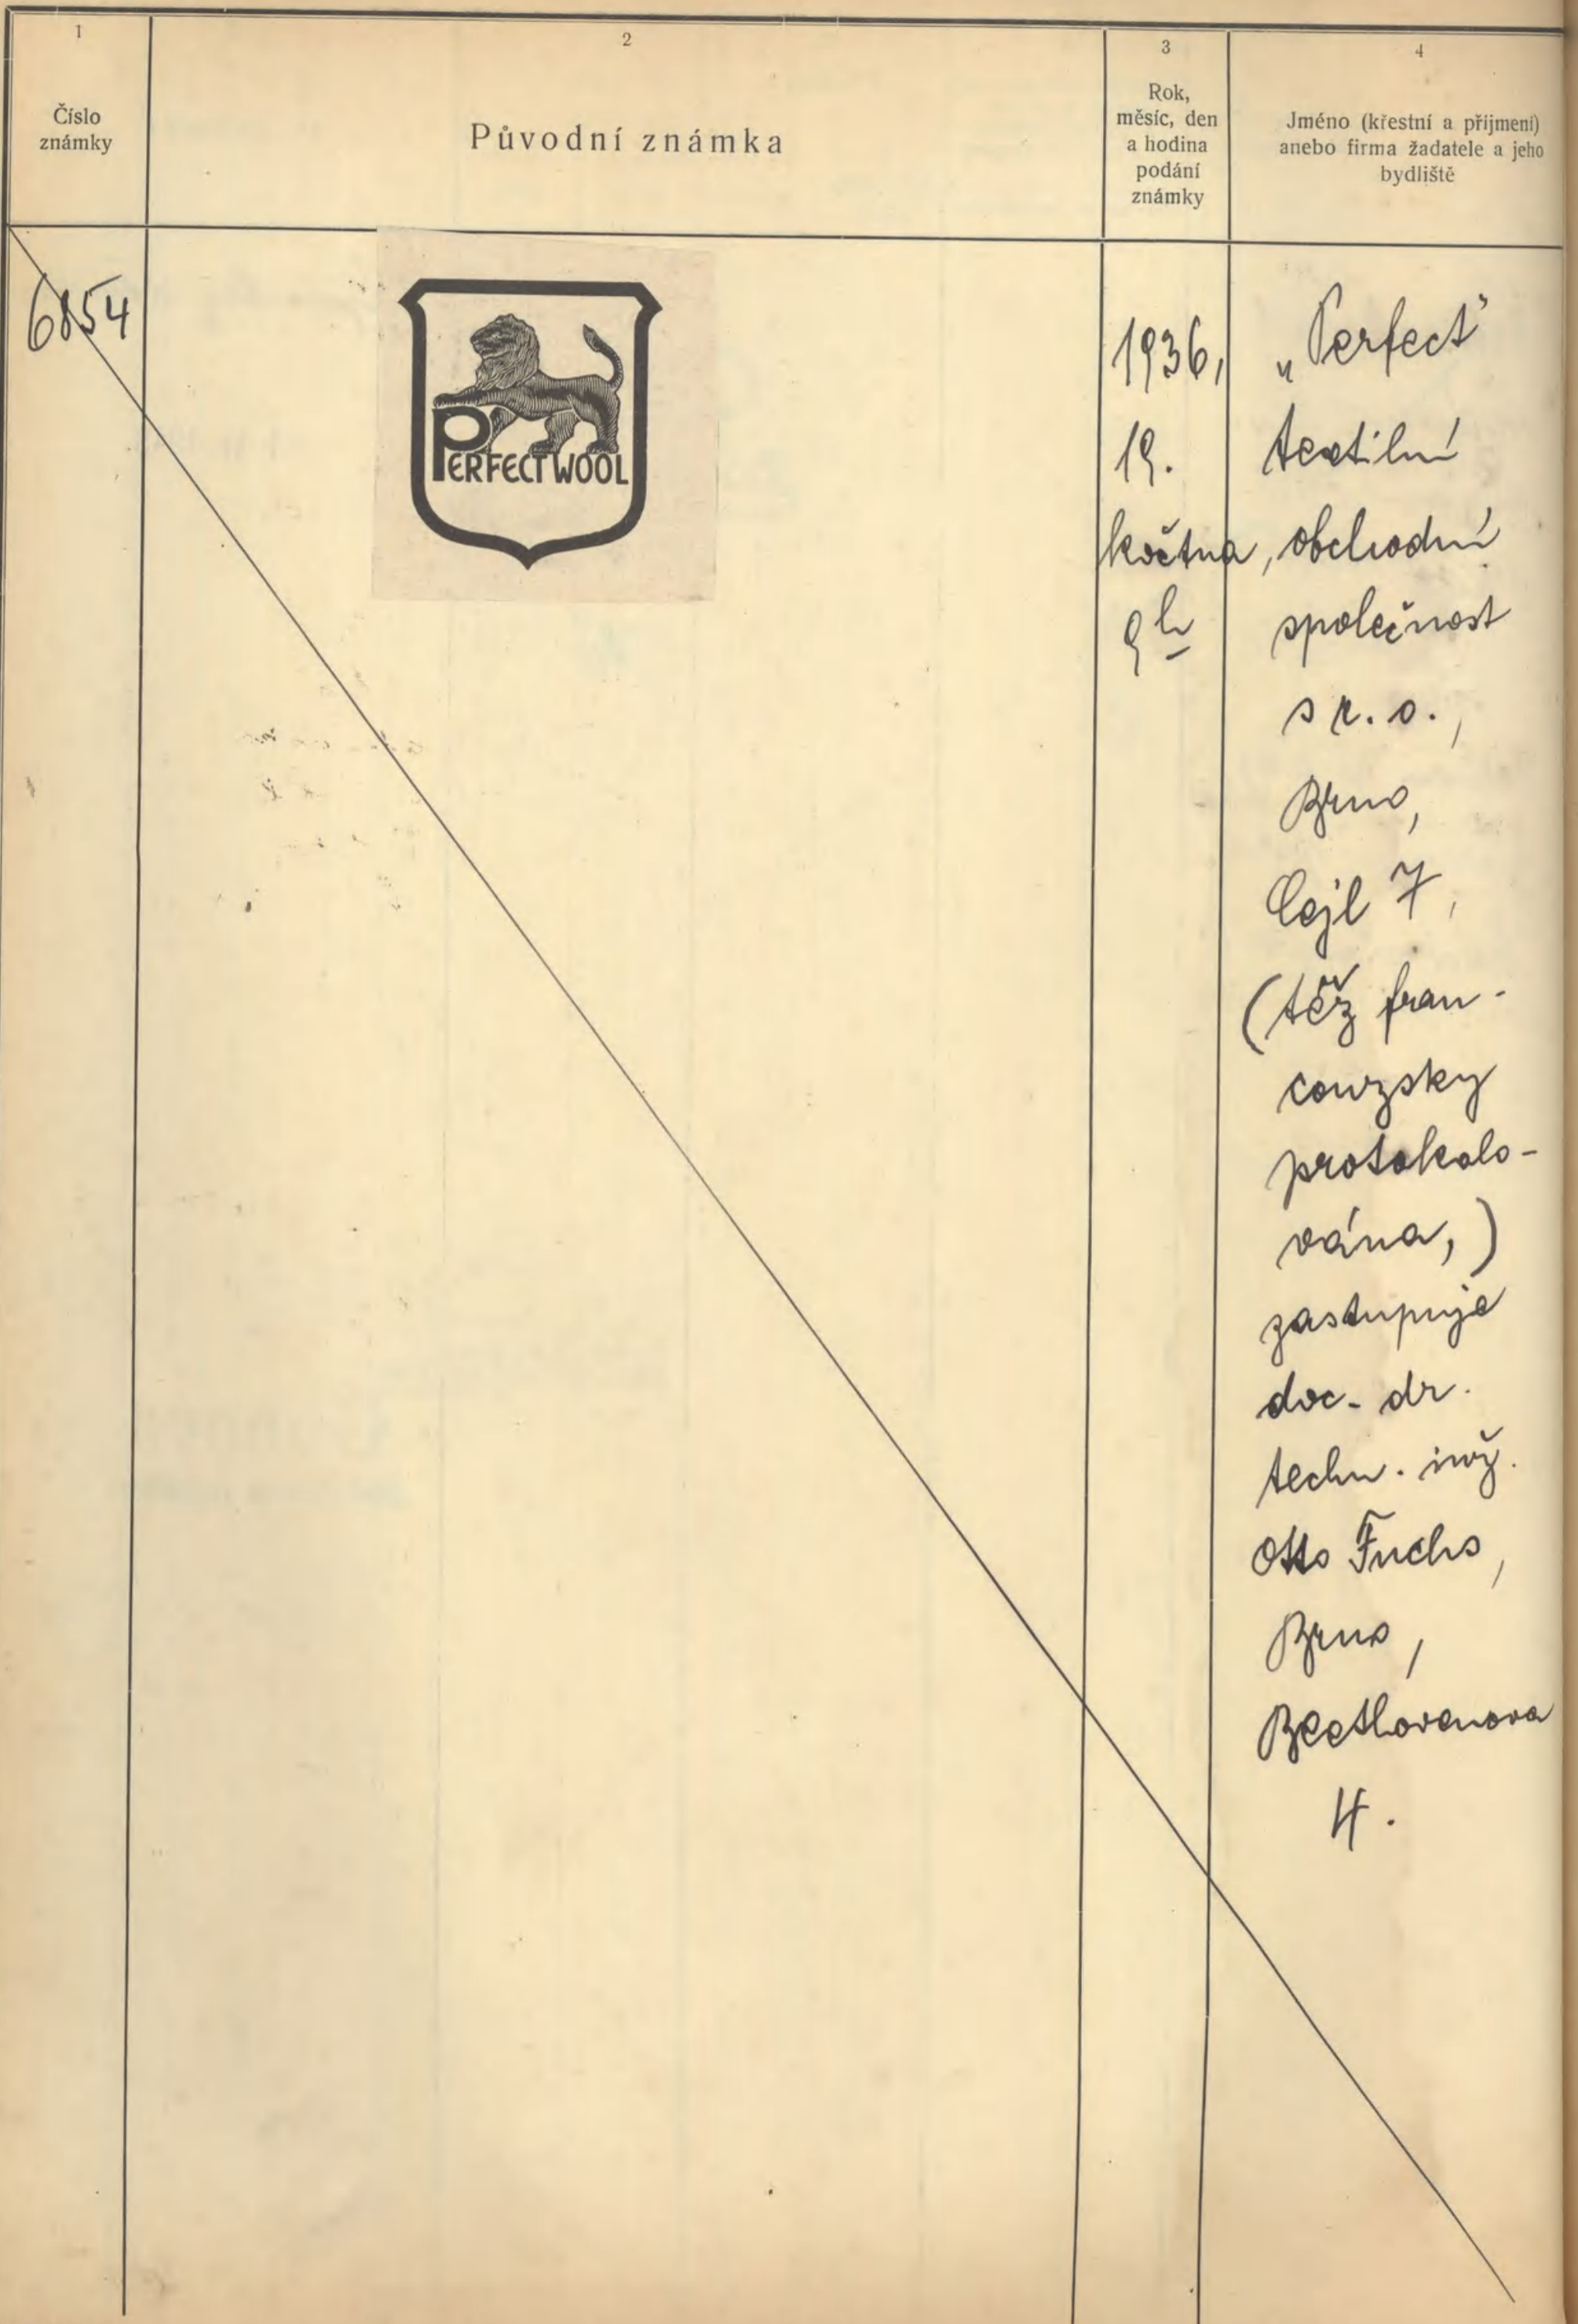 1
Číslo
známky
2
Původní známka
3
Rok,
měsíc, den
a hodina
podání
známky
4
Jméno (křestní a příjmení)
anebo firma žadatele a jeho
bydliště
6854
PERFECT WOOL
1936,
19.
května,
9h
„Perfect"
textilní
obchodní
společnost
s r. o.,
Brno,
Cejl 7,
(též fran-
couzsky
protokolo-
vána,)
zastupuje
doc. dr.
techn. inž.
Otto Fuchs,
Brno,
Beethovenova
4.